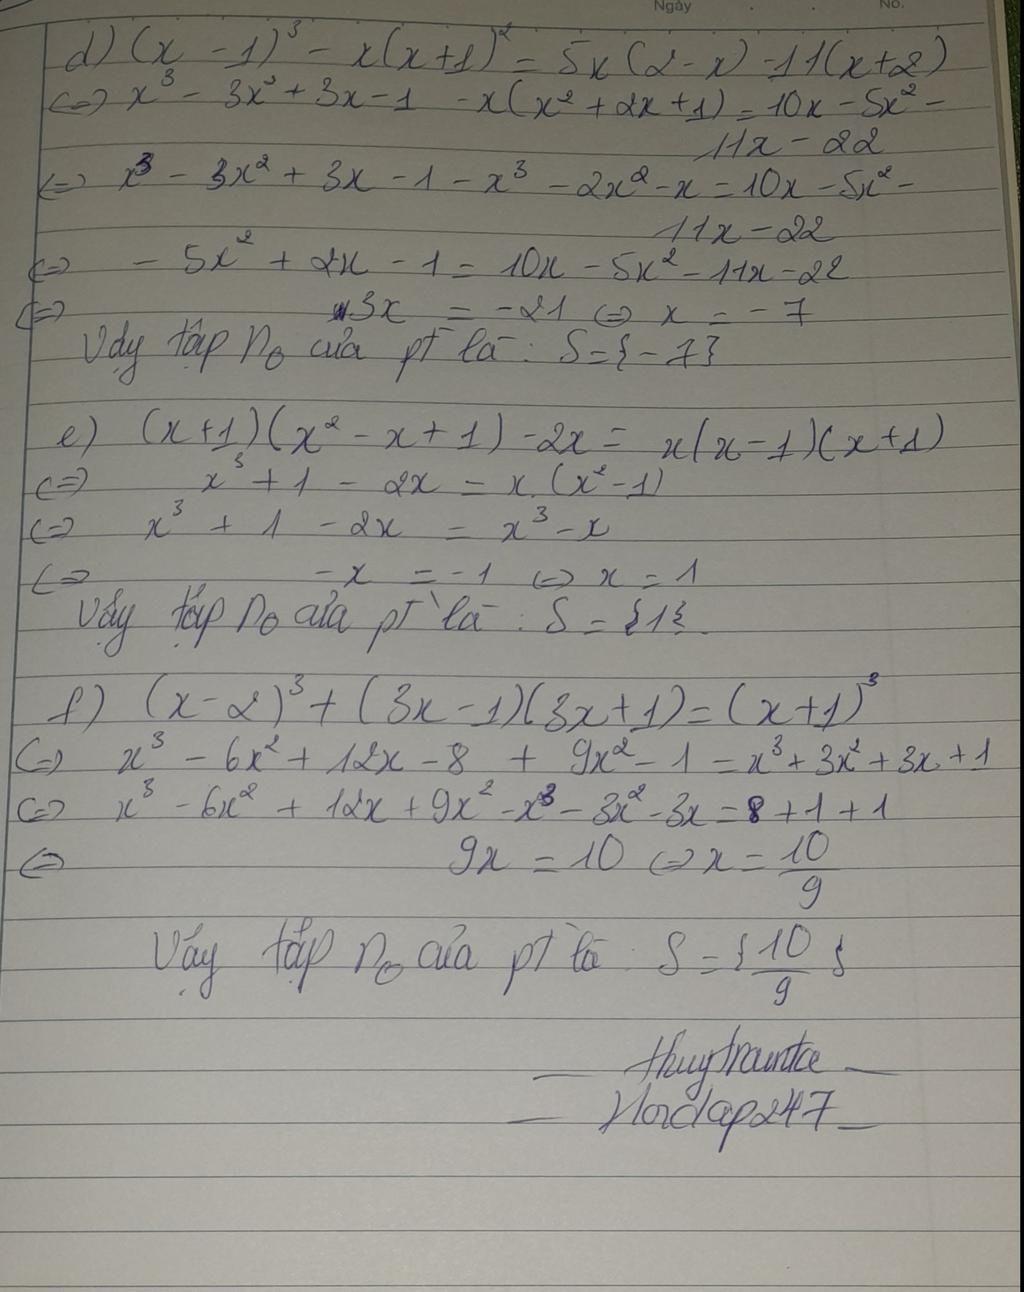 Ngày . . No.
d) (x - 1)³ - x(x+1)² = 5x(2-x) - 11(x+2)
<=> x³ - 3x² + 3x - 1 - x(x² + 2x + 1) = 10x - 5x² -
11x - 22
<=> x³ - 3x² + 3x - 1 - x³ - 2x² - x = 10x - 5x² -
11x - 22
<=> - 5x² + 2x - 1 = 10x - 5x² - 11x - 22
<=> 3x = -21 <=> x = -7
Vậy tập n₀ của pt là : S = {-7}
e) (x+1)(x² - x + 1) - 2x = x(x-1)(x+1)
<=> x³ + 1 - 2x = x.(x²-1)
<=> x³ + 1 - 2x = x³ - x
<=> -x = -1 <=> x = 1
Vậy tập n₀ của pt là : S = {1}.
f) (x-2)³ + (3x-1)(3x+1) = (x+1)³
<=> x³ - 6x² + 12x - 8 + 9x² - 1 = x³ + 3x² + 3x + 1
<=> x³ - 6x² + 12x + 9x² - x³ - 3x² - 3x = 8 + 1 + 1
<=> 9x = 10 <=> x = 10/9
Vậy tập n₀ của pt là : S = {10/9}